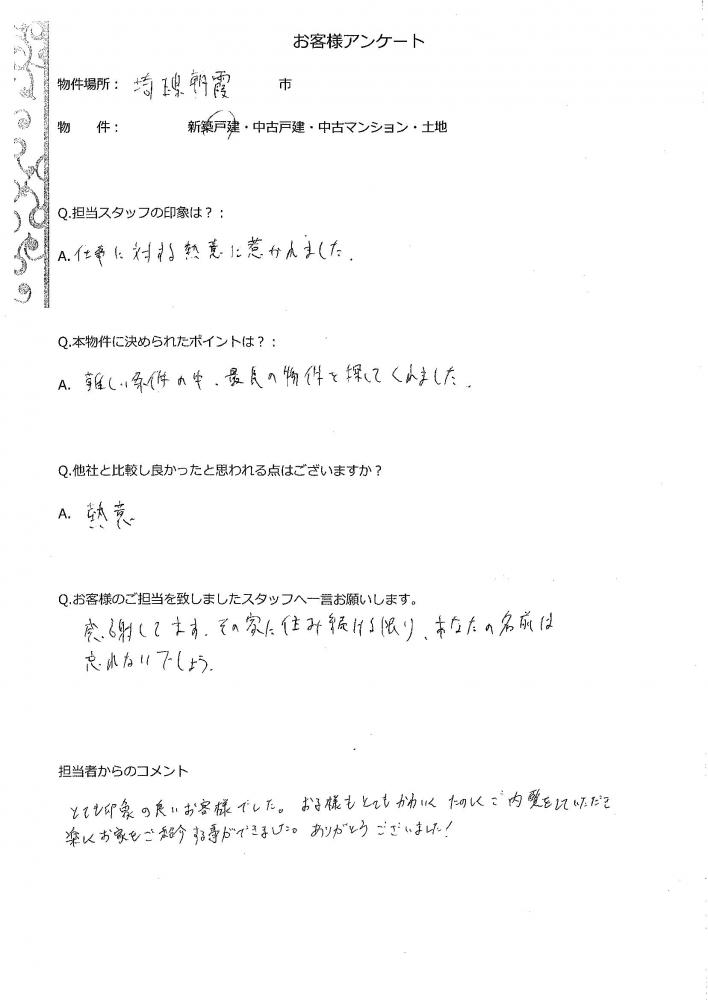 お客様アンケート
物件場所： 埼玉県朝霞 市
物　　件： 新築戸建・中古戸建・中古マンション・土地
Q.担当スタッフの印象は？：
A. 仕事に対する熱意に惹かれました.
Q.本物件に決められたポイントは？：
A. 難しい条件の中、最良の物件を探してくれました.
Q.他社と比較し良かったと思われる点はございますか？
A. 熱意
Q.お客様のご担当を致しましたスタッフへ一言お願いします。
感謝してます. その家に住み続ける限り、あなたの名前は
忘れないでしょう.
担当者からのコメント
とても印象の良いお客様でした。お子様もとてもかわいく たのしくご内覧をしていただき
楽しくお家をご紹介する事ができました。ありがとうございました！